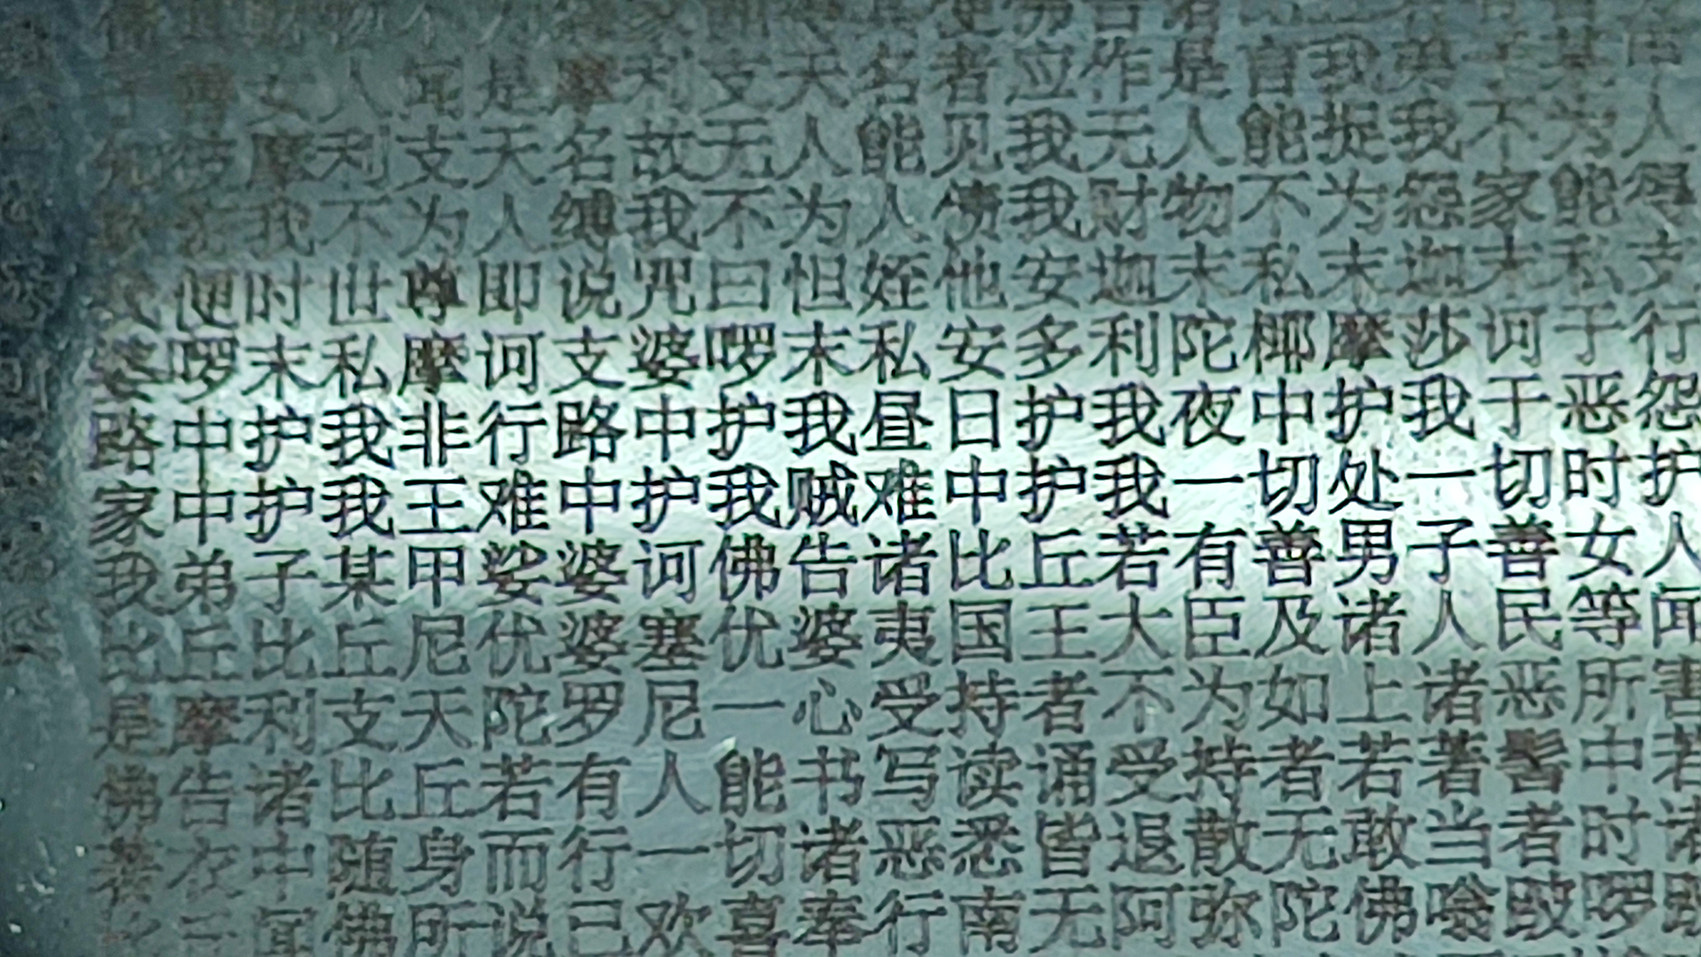 善女人闻是摩利支天名者应作是言我
摩利支天名故无人能见我无人能捉我不为人
我不为人缚我不为人债我财物不为怨家能得
我便时世尊即说咒曰怛姪他安迦末私末迦末私支
婆啰末私摩诃支婆啰末私安多利陀椰摩莎诃于行
路中护我非行路中护我昼日护我夜中护我于恶怨
家中护我王难中护我贼难中护我一切处一切时护
我弟子某甲娑婆诃佛告诸比丘若有善男子善女人
比丘比丘尼优婆塞优婆夷国王大臣及诸人民等闻
是摩利支天陀罗尼一心受持者不为如上诸恶所害
佛告诸比丘若有人能书写读诵受持者若著髻中若
著衣中随身而行一切诸恶悉皆退散无敢当者时诸
闻佛所说已欢喜奉行南无阿弥陀佛唵